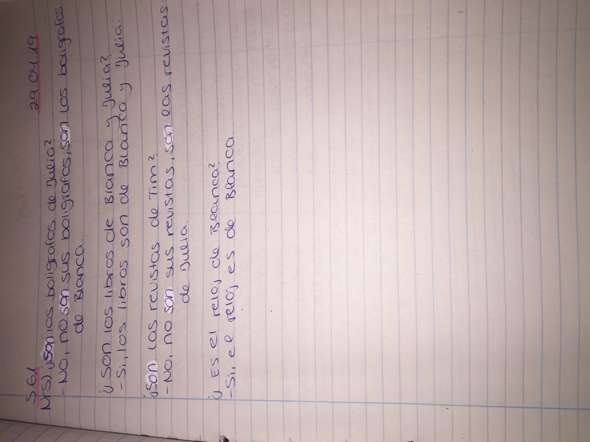 S.61 29.04.19
Nr5) ¿Son los boligrafos de Julia?
- No, no son sus boligrafos, son los boligrafos
de Blanca.
¿Son los libros de Blanca y Julia?
- Si, los libros son de Blanca y Julia.
¿Son las revistas de Tim?
- No, no son sus revistas, son las revistas
de Julia
¿Es el reloj de Blanca?
- Si, el reloj es de Blanca.